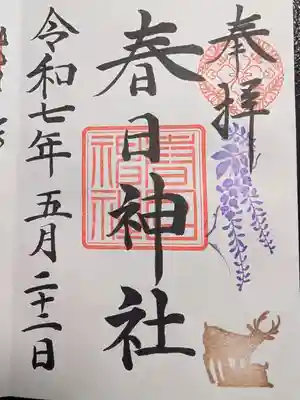 奉拝
春日神社
春日神社
令和七年五月二十二日